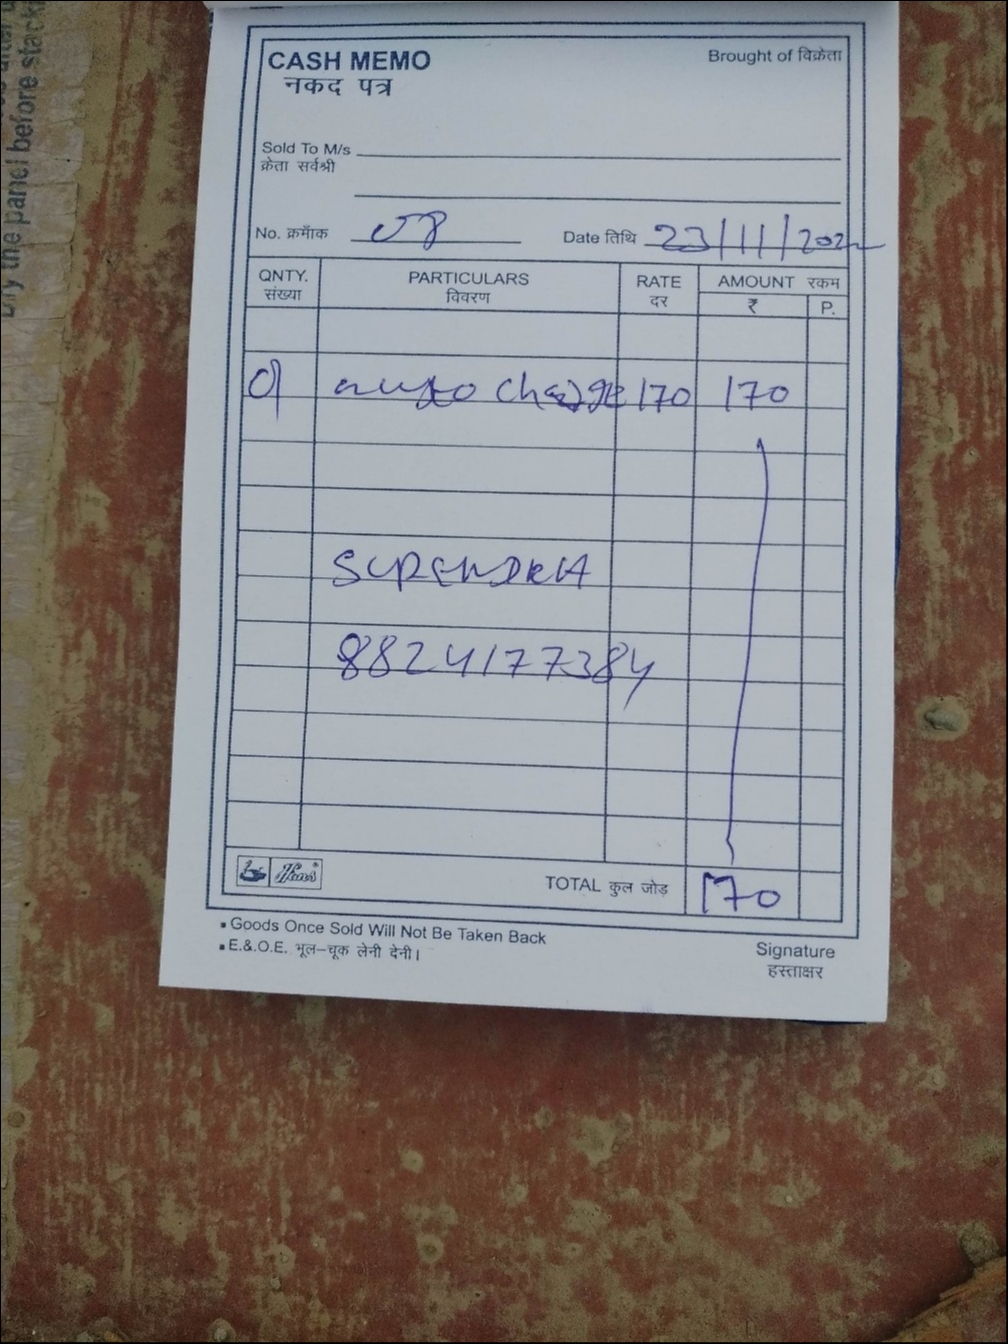 Dry the panel before stack
CASH MEMO
नकद पत्र
Brought of विक्रेता
Sold To M/s
क्रेता सर्वश्री
No. क्रमाँक 08 Date तिथि 23/11/2022
QNTY. PARTICULARS RATE AMOUNT रकम
संख्या विवरण दर ₹ P.
01 auto charge 170 170
SURENDRA
8824177384
Hans
TOTAL कुल जोड़ 170
Goods Once Sold Will Not Be Taken Back
E.&O.E. भूल–चूक लेनी देनी।
Signature
हस्ताक्षर